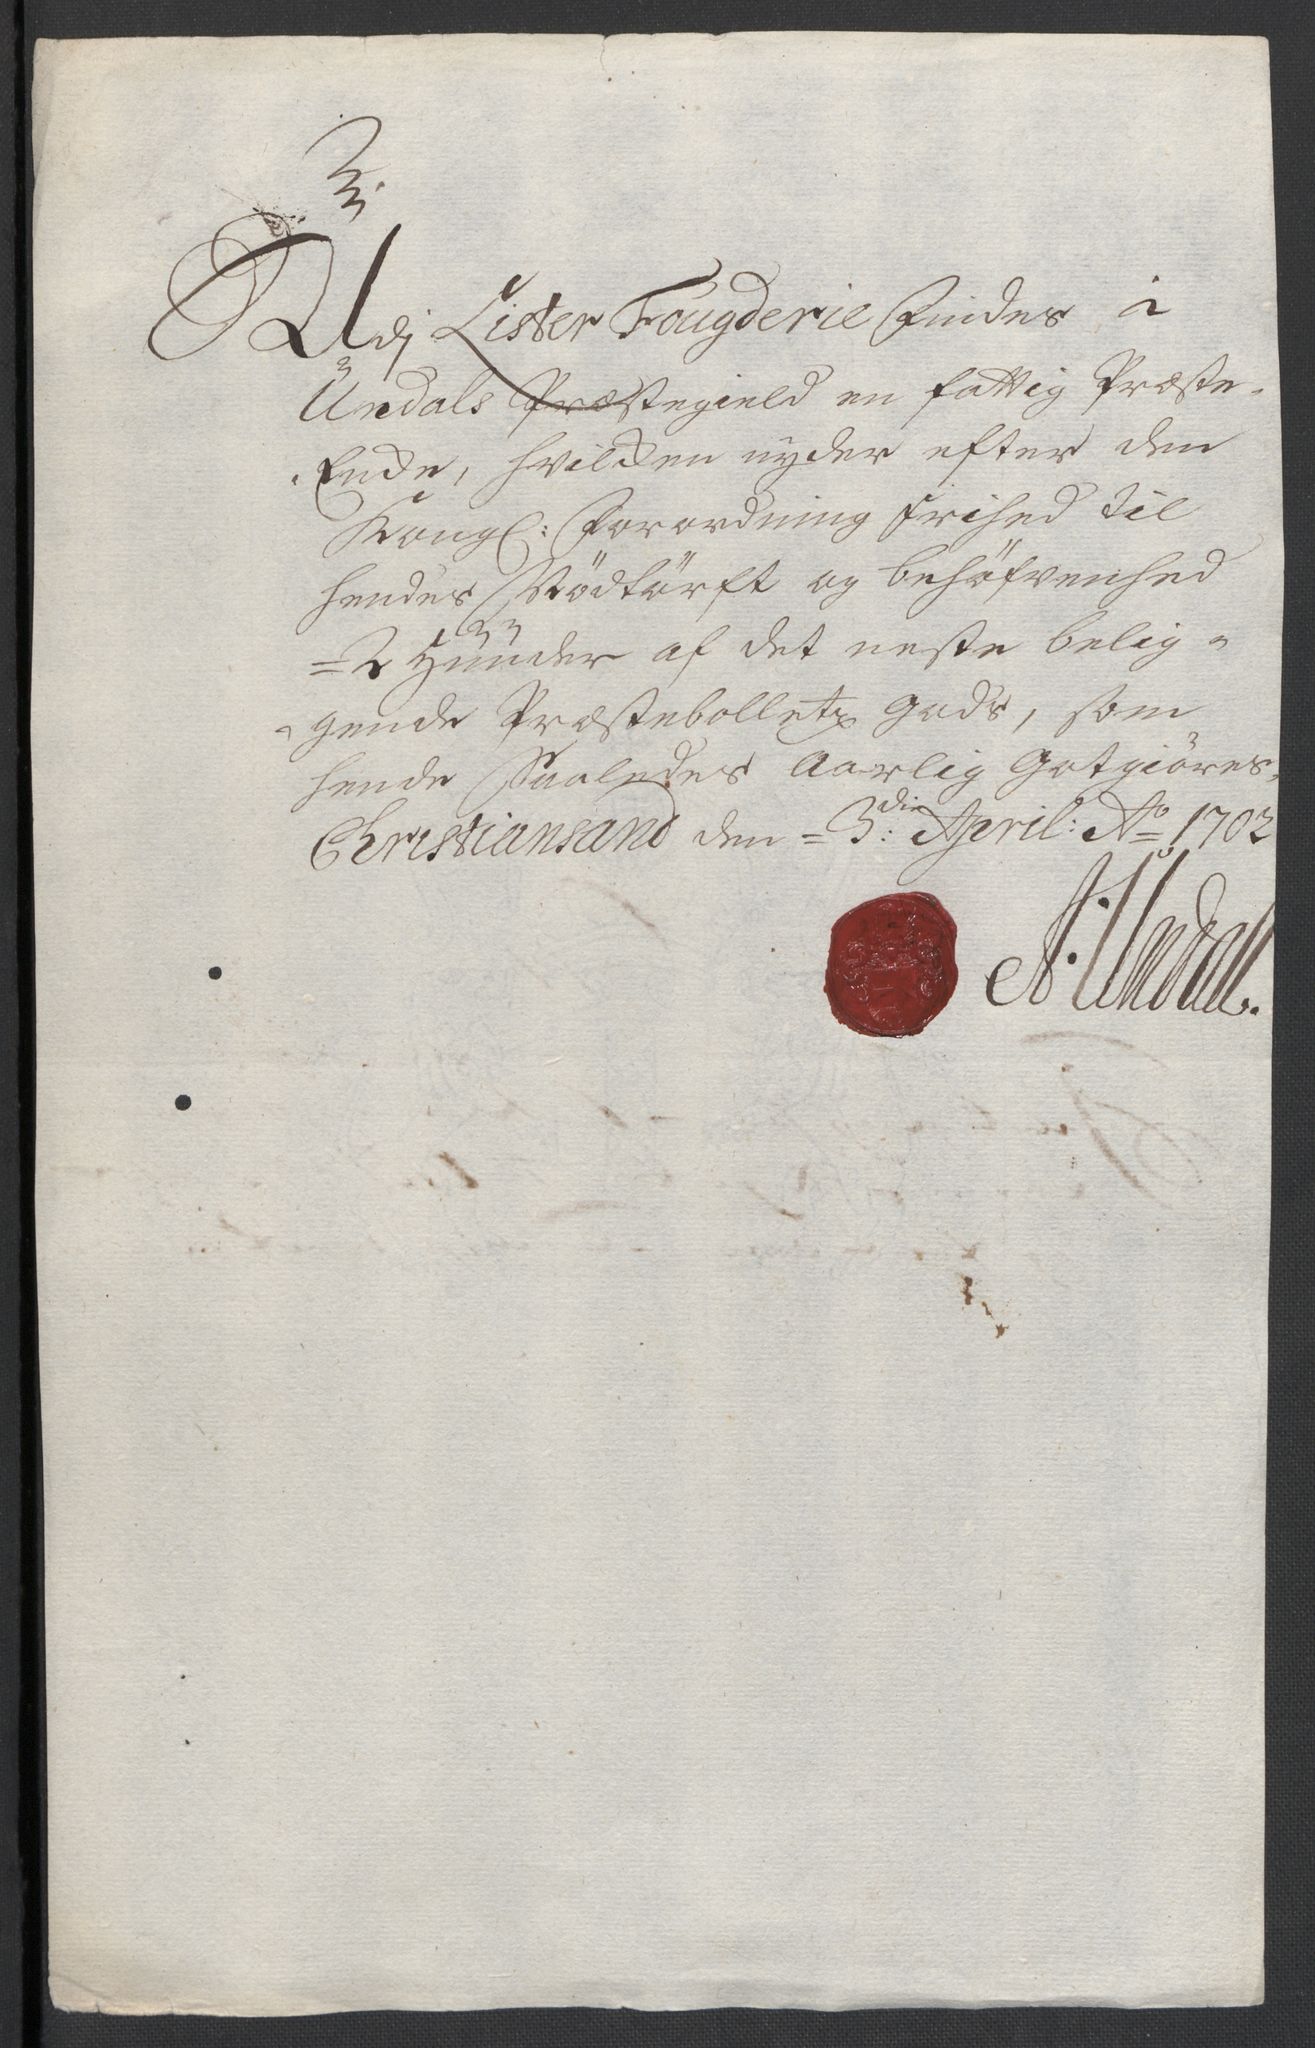 Udj Lister Fougderie findes i
Undals Præstegield en fattig Præste-
Encke, hvilcken nyder efter den
Kongl: Forordning frihed til
hendes Nödtörft og behöfvenhed
=2 Hunder af det neste belig-
gende Præstebollets gods, som
hende Saaledes Aarlig Gotgiöres,
Christiansand den =3die: April: Ao 1702
A: Undall.